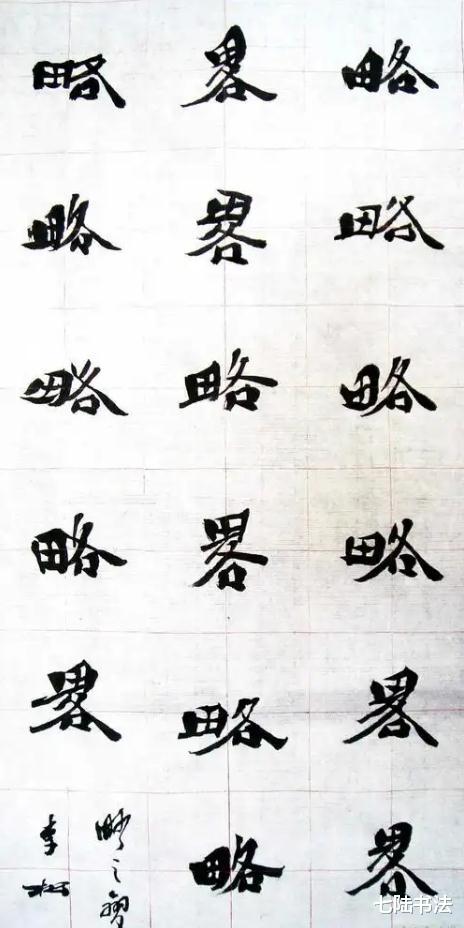 略略略略畧畧
畧畧略畧略略
略略略略畧
略之
李松
七陆书法